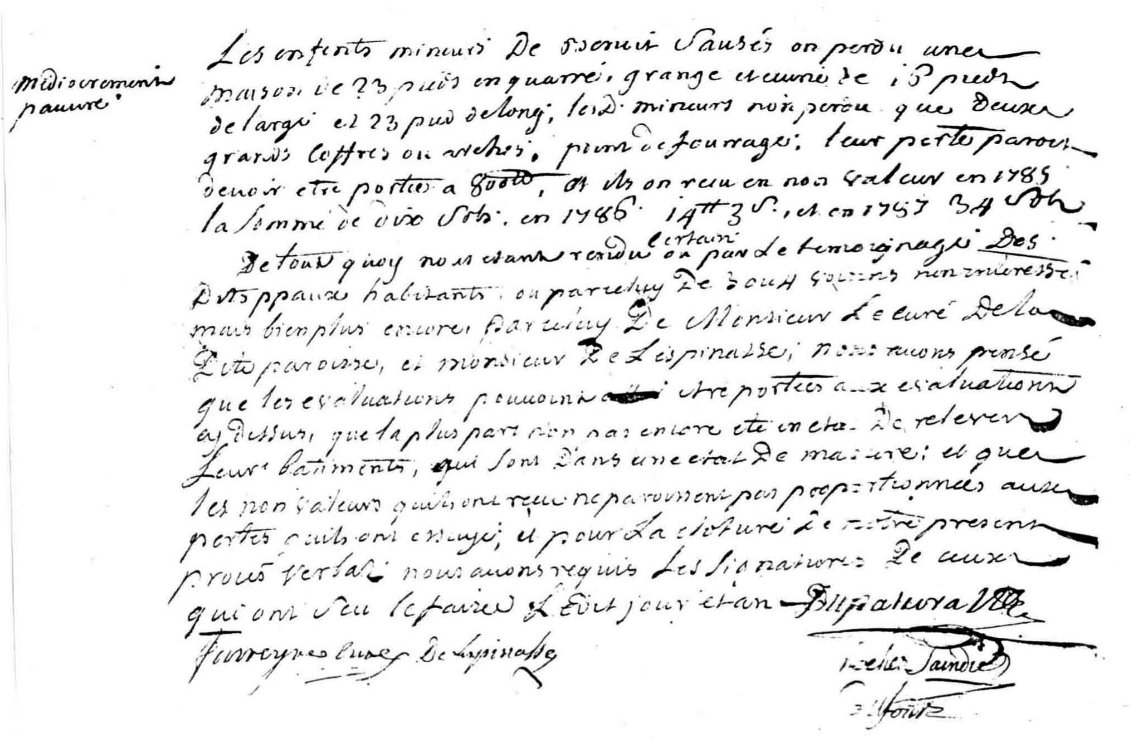 mediocrement
pauvre
Les enfents mineurs De Benoit Sausés on perdu une
maison de 23 pieds en quarré, grange et ecurie de 16 pieds
de large et 23 pied de long, lesd. mineurs non perdu que deux
grands coffres ou arches, point de fourrage; leur perte paroit
devoir etre portée a 800tt, et ils on recu en non valeur en 1785
la somme de dix sols, en 1786 14tt 3 s., et en 1787 34 sols
De tout quoy nous etant rendu certain ou par Le temoignage Des
Dits ppaux habitants, ou par celuy De 3 ou 4 voisins non interessés
mais bien plus encore, par celuy De Monsieur Le curé De la
Dite paroisse, et monsieur De Lespinasse; nous avons pensé
que les evaluations pouvoint etre portées aux evaluations
cy dessus, que la plus part non pas encore eté en eta De relever
Leurs batiments, qui sont Dans une etat De masure; et que
les non valeurs quils ont recu ne paroissent pas proportionnées aux
pertes quils ont essuyé; et pour La cloture De notre present
procés verbal nous avons requis Les signatures De ceux
qui ont seu le faire Ledit jour et an
curé De Lespinasse